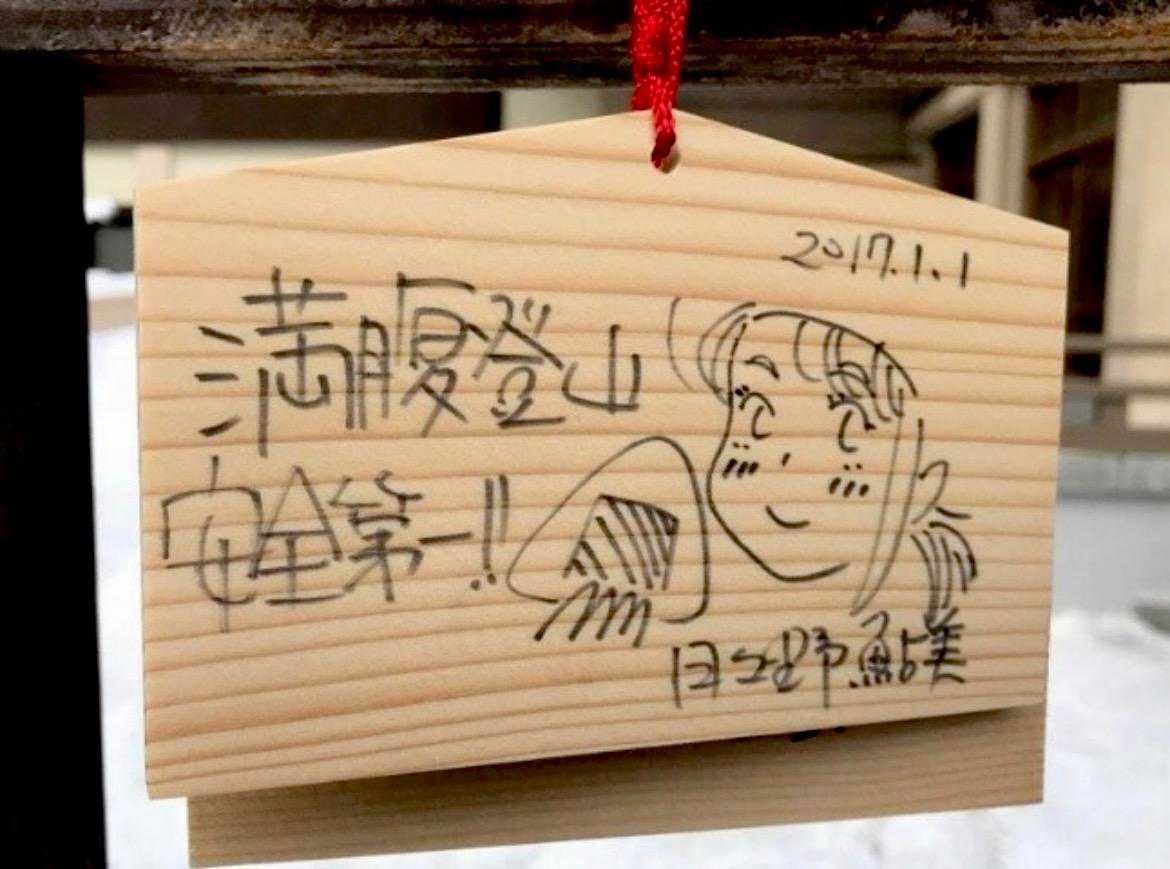 2017.1.1
満腹登山
安全第一!!
日々野鮎美